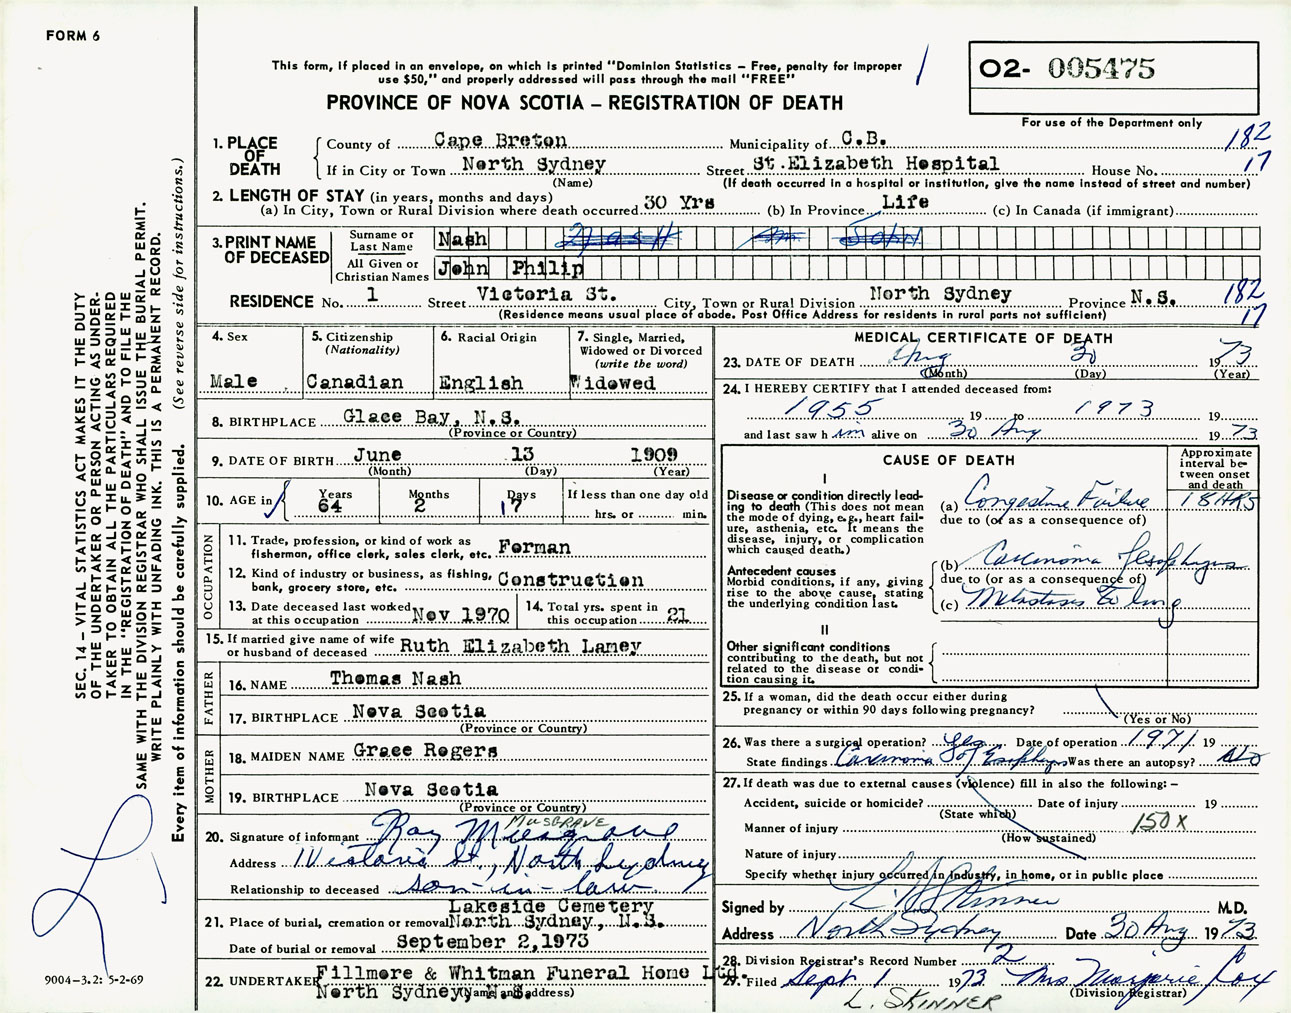 FORM 6
This form, if placed in an envelope, on which is printed "Dominion Statistics – Free, penalty for improper
use $50," and properly addressed will pass through the mail "FREE"
PROVINCE OF NOVA SCOTIA – REGISTRATION OF DEATH
O2- 005475
For use of the Department only
1. PLACE OF DEATH
County of Cape Breton Municipality of C.B. 182
If in City or Town North Sydney Street St.Elizabeth Hospital House No. 17
(Name) (If death occurred in a hospital or institution, give the name instead of street and number)
2. LENGTH OF STAY (in years, months and days)
(a) In City, Town or Rural Division where death occurred 30 Yrs (b) In Province Life (c) In Canada (if immigrant)
3. PRINT NAME OF DECEASED
Surname or Last Name Nash
All Given or Christian Names John Philip
RESIDENCE No. 1 Street Victoria St. City, Town or Rural Division North Sydney Province N.S. 182
(Residence means usual place of abode. Post Office Address for residents in rural parts not sufficient) 17
4. Sex
Male
5. Citizenship
(Nationality)
Canadian
6. Racial Origin
English
7. Single, Married,
Widowed or Divorced
(write the word)
Widowed
8. BIRTHPLACE Glace Bay, N.S.
(Province or Country)
9. DATE OF BIRTH June 13 1909
(Month) (Day) (Year)
10. AGE in Years Months Days If less than one day old
64 2 17 hrs. or min.
OCCUPATION
11. Trade, profession, or kind of work as
fisherman, office clerk, sales clerk, etc. Forman
12. Kind of industry or business, as fishing,
bank, grocery store, etc. Construction
13. Date deceased last worked
at this occupation Nov 1970
14. Total yrs. spent in
this occupation 21
15. If married give name of wife
or husband of deceased Ruth Elizabeth Lamey
FATHER
16. NAME Thomas Nash
17. BIRTHPLACE Nova Scotia
(Province or Country)
MOTHER
18. MAIDEN NAME Grace Rogers
19. BIRTHPLACE Nova Scotia
(Province or Country)
MUSGRAVE
20. Signature of informant Roy Musgrave
Address 1 Victoria St., North Sydney
Relationship to deceased son-in-law
Lakeside Cemetery
21. Place of burial, cremation or removal North Sydney, N.S.
Date of burial or removal September 2,1973
22. UNDERTAKER Fillmore & Whitman Funeral Home Ltd.
North Sydney, N.S.
(Name and address)
MEDICAL CERTIFICATE OF DEATH
23. DATE OF DEATH Aug 30 1973
(Month) (Day) (Year)
24. I HEREBY CERTIFY that I attended deceased from:
1955 19 to 1973 19
and last saw him alive on 30 Aug 1973
CAUSE OF DEATH
Approximate
interval be-
tween onset
and death
I
Disease or condition directly lead-
ing to death (This does not mean
the mode of dying, e.g., heart fail-
ure, asthenia, etc. It means the
disease, injury, or complication
which caused death.)
(a) Congestive Failure 18 HRS
due to (or as a consequence of)
Antecedent causes
Morbid conditions, if any, giving
rise to the above cause, stating
the underlying condition last.
(b) Carcinoma Esophagus
due to (or as a consequence of)
(c) Metastases to lung
II
Other significant conditions
contributing to the death, but not
related to the disease or condi-
tion causing it.
25. If a woman, did the death occur either during
pregnancy or within 90 days following pregnancy?
(Yes or No)
26. Was there a surgical operation? Yes Date of operation 1971 19
State findings Carcinoma of Esophagus Was there an autopsy? No
27. If death was due to external causes (violence) fill in also the following: –
Accident, suicide or homicide? Date of injury 19
(State which)
Manner of injury 150X
(How sustained)
Nature of injury
Specify whether injury occurred in industry, in home, or in public place
Signed by L. Skinner M.D.
Address North Sydney Date 30 Aug 1973
28. Division Registrar's Record Number 2
29. Filed Sept 1 1973 Mrs Marjorie Cox
(Division Registrar)
L. SKINNER
SEC. 14 – VITAL STATISTICS ACT MAKES IT THE DUTY
OF THE UNDERTAKER OR PERSON ACTING AS UNDER-
TAKER TO OBTAIN ALL THE PARTICULARS REQUIRED
IN THE "REGISTRATION OF DEATH" AND TO FILE THE
SAME WITH THE DIVISION REGISTRAR WHO SHALL ISSUE THE BURIAL PERMIT.
WRITE PLAINLY WITH UNFADING INK. THIS IS A PERMANENT RECORD.
Every item of information should be carefully supplied. (See reverse side for instructions.)
9004–3.2: 5-2-69